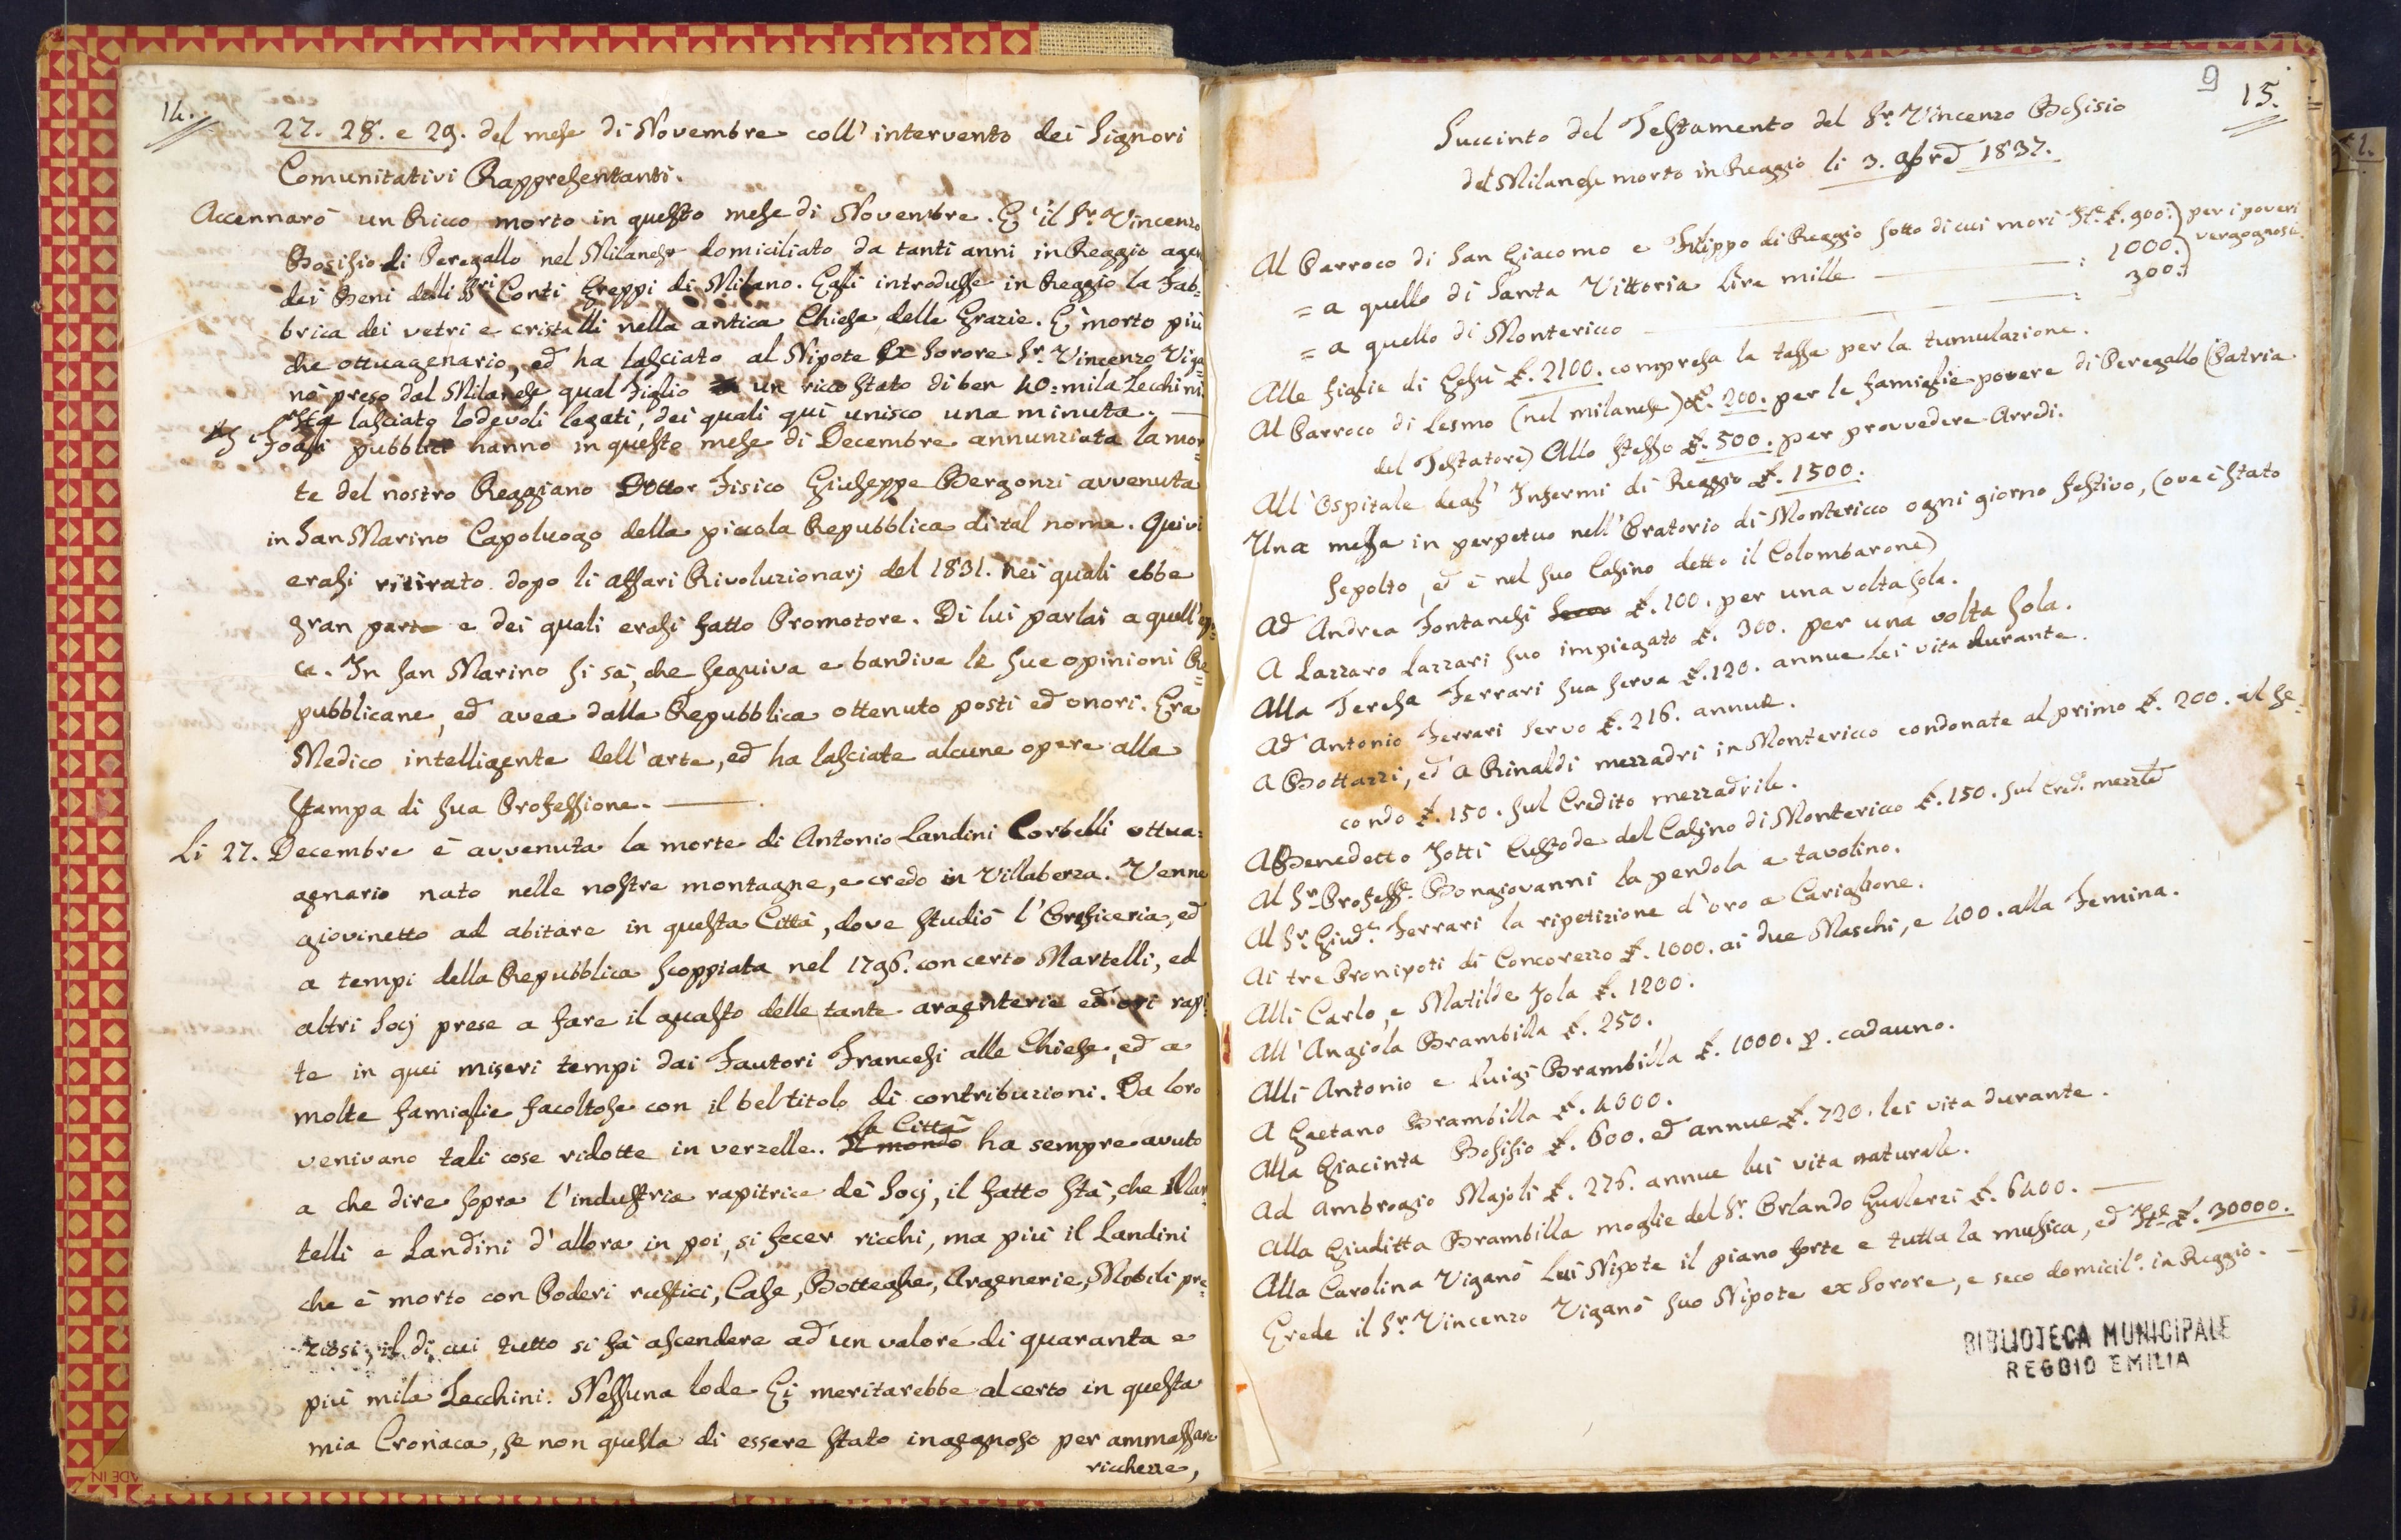 14.
27. 28. e 29. del mese di Novembre coll' intervento dei Signori
Comunitativi Rappresentanti.
Accennarò un Ricco morto in questo mese di Novembre. E' il Sr. Vincenzo
Bosisio di Peregallo nel Milanese domiciliato da tanti anni in Reggio agen
dei Beni delli Sri Conti Greppi di Milano. Egli introdusse in Reggio la Fab=
brica dei vetri e cristalli nella antica Chiesa delle Grazie. E' morto più
che ottuagenario, ed ha lasciato al Nipote Ex Sorore Sr. Vincenzo Viga=
nò preso dal Milanese qual Figlio un ricco stato di ben 40: mila Zecchini.
Ha lasciato lodevoli legati, dei quali quì unisco una minuta. —
Fogli pubblici hanno in questo mese di Decembre annunziata la mor=
te del nostro Reggiano Dottor Fisico Giuseppe Bergonzi avvenuta
in San Marino Capoluogo della piccola Repubblica di tal nome. Quivi
erasi ritirato dopo li affari Rivoluzionarj del 1831. nei quali ebbe
gran parte e dei quali erasi fatto Promotore. Di lui parlai a quell'epo=
ca. In San Marino si sà, che seguiva e bandiva le sue opinioni Re=
pubblicane, ed avea dalla Repubblica ottenuto posti ed onori. Era
Medico intelligente dell'arte, ed ha lasciate alcune opere alla
stampa di sua Professione. —
Li 27. Decembre è avvenuta la morte di Antonio Landini Corbelli ottua=
genario nato nelle nostre montagne, e credo in Villaberza. Venne
giovinetto ad abitare in questa Città, dove studiò l'Oreficeria, ed
a tempi della Repubblica scoppiata nel 1796. con certo Martelli, ed
altri Socj prese a fare il guasto delle tante argenterie ed ori rapi=
te in quei miseri tempi dai Fautori Francesi alle Chiese, ed a
molte famiglie facoltose con il bel titolo di contribuzioni. Da loro
venivano tali cose ridotte in verzelle. Il mondo La Città ha sempre avuto
a che dire sopra l'industria rapitrice dè Socj, il fatto stà, che Mar=
telli e Landini d'allora in poi, si fecer ricchi, ma più il Landini
che è morto con Poderi rustici, Case, Botteghe, Argenerie, Mobili pre=
ziosi, il di cui tutto si fà ascendere ad un valore di quaranta e
più mila Zecchini. Nessuna lode Ei meritarebbe al certo in questa
mia Cronaca, se non quella di essere stato ingegnoso per ammassare
ricchezze,
9
15.
Succinto del Testamento del Sr. Vincenzo Bosisio
del Milanese morto in Reggio li 3. 9bre 1837.
Al Parroco di San Giacomo e Filippo di Reggio sotto di cui morì Ite £. 900.) per i poveri
= a quello di Santa Vittoria lire mille — : 1000.) vergognosi.
= a quello di Montericco — : 300.)
Alle figlie di Gesù £. 2100. compresa la tassa per la tumulazione.
Al Parroco di Lesmo (nel milanese) £. 200. per le famiglie povere di Peregallo (Patria
del Testatore) Allo stesso £. 500. per provvedere Arredi.
All'Ospitale degl' Infermi di Reggio £. 1500.
Una messa in perpetuo nell'Oratorio di Montericco ogni giorno festivo, (ove è stato
sepolto, ed è nel suo Casino detto il Colombarone)
Ad Andrea Fontanesi £. 100. per una volta sola.
A Lazzaro Lazzari suo impiegato £. 300. per una volta sola.
Alla Teresa Ferrari sua serva £. 120. annue lei vita durante.
Ad Antonio Ferrari servo £. 216. annue.
A Bottazzi, ed a Rinaldi mezzadri in Montericco condonate al primo £. 200. al se=
condo £. 150. sul Credito mezzadrile.
A Benedetto Jotti Custode del Casino di Montericco £. 150. sul Cred.o mezzle
Al Sr. Professe. Bongiovanni la pendola a tavolino.
Al Sr. Giude. Ferrari la ripetizione d'oro a Cariglione.
Ai tre Pronipoti di Concorezzo £. 1000. ai due Maschi, e 400. alla Femina.
Alli Carlo, e Matilde Jola £. 1200.
All'Angiola Brambilla £. 250.
Alli Antonio e Luigi Brambilla £. 1000. p. cadauno.
A Gaetano Brambilla £. 4000.
Alla Giacinta Bosisio £. 600. ed annue £. 720. lei vita durante.
Ad Ambrogio Majoli £. 276. annue lui vita naturale.
Alla Giuditta Brambilla moglie del Sr. Orlando Gualerzi £. 6400. —
Alla Carolina Viganò lui Nipote il piano forte e tutta la musica, ed Ite £. 30000.
Erede il Sr. Vincenzo Viganò suo Nipote ex Sorore, e seco domicil.o in Reggio. —
BIBLIOTECA MUNICIPALE
REGGIO EMILIA